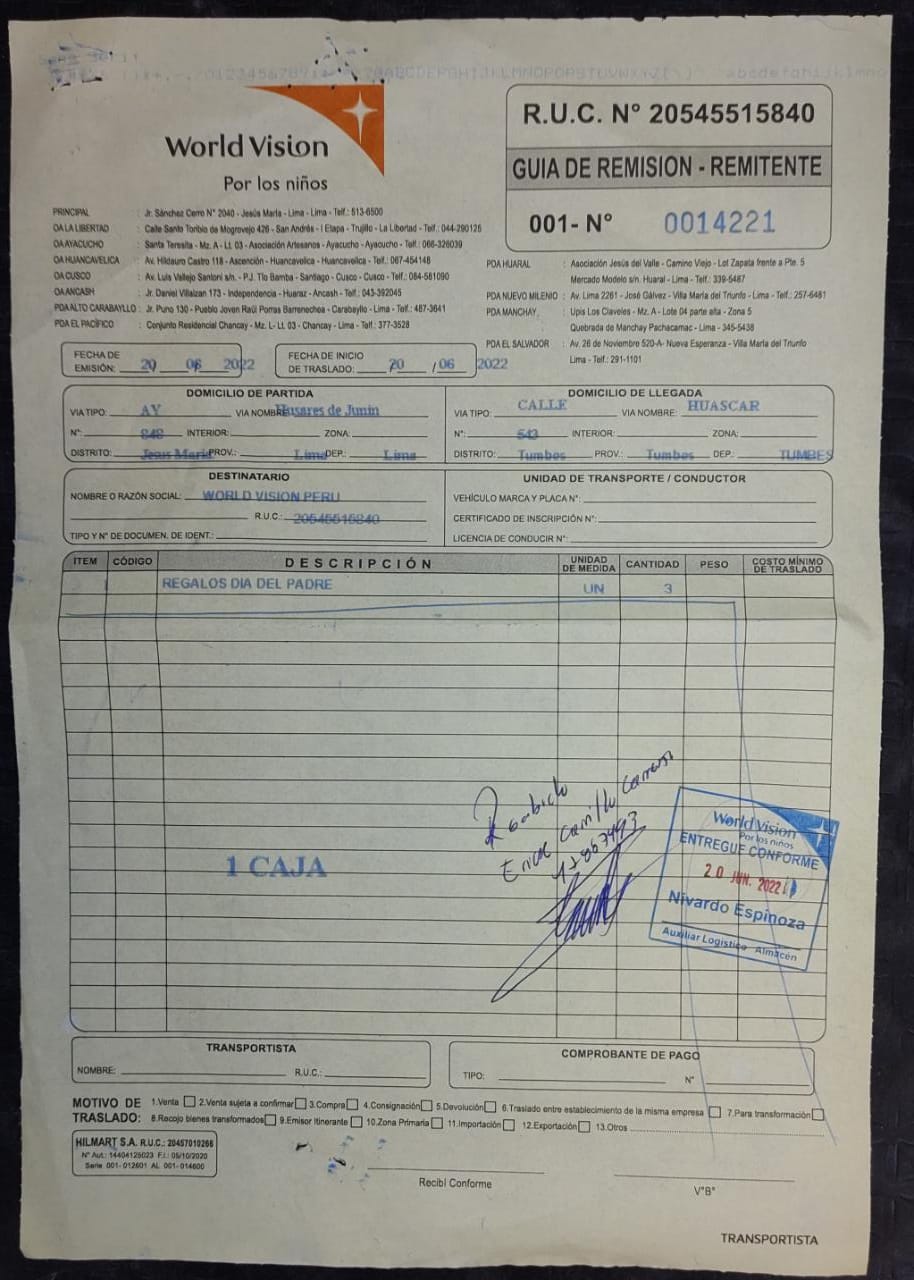 World Vision
Por los niños
R.U.C. N° 20545515840
GUIA DE REMISION - REMITENTE
001- N° 0014221
PRINCIPAL : Jr. Sánchez Cerro N° 2040 - Jesús María - Lima - Lima - Telf.: 513-6500
OA LA LIBERTAD : Calle Santo Toribio de Mogrovejo 426 - San Andrés - I Etapa - Trujillo - La Libertad - Telf.: 044-290126
OA AYACUCHO : Santa Teresita - Mz. A - Lt. 03 - Asociación Artesanos - Ayacucho - Ayacucho - Telf.: 066-326039
OA HUANCAVELICA : Av. Hildauro Castro 118 - Ascención - Huancavelica - Huancavelica - Telf.: 067-454148
OA CUSCO : Av. Luis Vallejo Santoni s/n. - P.J. Tío Bamba - Santiago - Cusco - Cusco - Telf.: 084-581090
OA ANCASH : Jr. Daniel Villaizan 173 - Independencia - Huaraz - Ancash - Telf.: 043-392045
PDA ALTO CARABAYLLO : Jr. Puno 130 - Pueblo Joven Raúl Porras Barrenechea - Carabayllo - Lima - Telf.: 487-3641
PDA EL PACÍFICO : Conjunto Residencial Chancay - Mz. L - Lt. 03 - Chancay - Lima - Telf.: 377-3528
PDA HUARAL : Asociación Jesús del Valle - Camino Viejo - Lot Zapata frente a Pte. 5
Mercado Modelo s/n. Huaral - Lima - Telf.: 339-5487
PDA NUEVO MILENIO : Av. Lima 2261 - José Gálvez - Villa María del Triunfo - Lima - Telf.: 257-6481
PDA MANCHAY : Upis Los Claveles - Mz. A - Lote 04 parte alta - Zona 5
Quebrada de Manchay Pachacamac - Lima - 345-5438
PDA EL SALVADOR : Av. 26 de Noviembre 520-A- Nueva Esperanza - Villa María del Triunfo
Lima - Telf.: 291-1101
FECHA DE EMISIÓN: 20 06 2022
FECHA DE INICIO DE TRASLADO: 20 / 06 2022
DOMICILIO DE PARTIDA
VIA TIPO: AY VIA NOMBRE: Husares de Junin
N°: 848 INTERIOR: ZONA:
DISTRITO: Jesus Maria PROV.: Lima DEP.: Lima
DOMICILIO DE LLEGADA
VIA TIPO: CALLE VIA NOMBRE: HUASCAR
N°: 543 INTERIOR: ZONA:
DISTRITO: Tumbes PROV.: Tumbes DEP.: TUMBES
DESTINATARIO
NOMBRE O RAZÓN SOCIAL: WORLD VISION PERU
R.U.C.: 20545515840
TIPO Y N° DE DOCUMEN. DE IDENT.:
UNIDAD DE TRANSPORTE / CONDUCTOR
VEHÍCULO MARCA Y PLACA N°:
CERTIFICADO DE INSCRIPCIÓN N°:
LICENCIA DE CONDUCIR N°:
ITEM CÓDIGO DESCRIPCIÓN UNIDAD DE MEDIDA CANTIDAD PESO COSTO MÍNIMO DE TRASLADO
REGALOS DIA DEL PADRE UN 3
1 CAJA
World Vision
Por los niños
ENTREGUE CONFORME
20 JUN. 2022
Nivardo Espinoza
Auxiliar Logístico Almacén
TRANSPORTISTA
NOMBRE: R.U.C.:
COMPROBANTE DE PAGO
TIPO: N°
MOTIVO DE TRASLADO: 1.Venta 2.Venta sujeta a confirmar 3.Compra 4.Consignación 5.Devolución 6.Traslado entre establecimiento de la misma empresa 7.Para transformación
8.Recojo bienes transformados 9.Emisor Itinerante 10.Zona Primaria 11.Importación 12.Exportación 13.Otros
HILMART S.A. R.U.C.: 20457010266
N° Aut.: 14404125023 F.I.: 05/10/2020
Serie 001- 012601 AL 001- 014600
Recibí Conforme
V°B°
TRANSPORTISTA